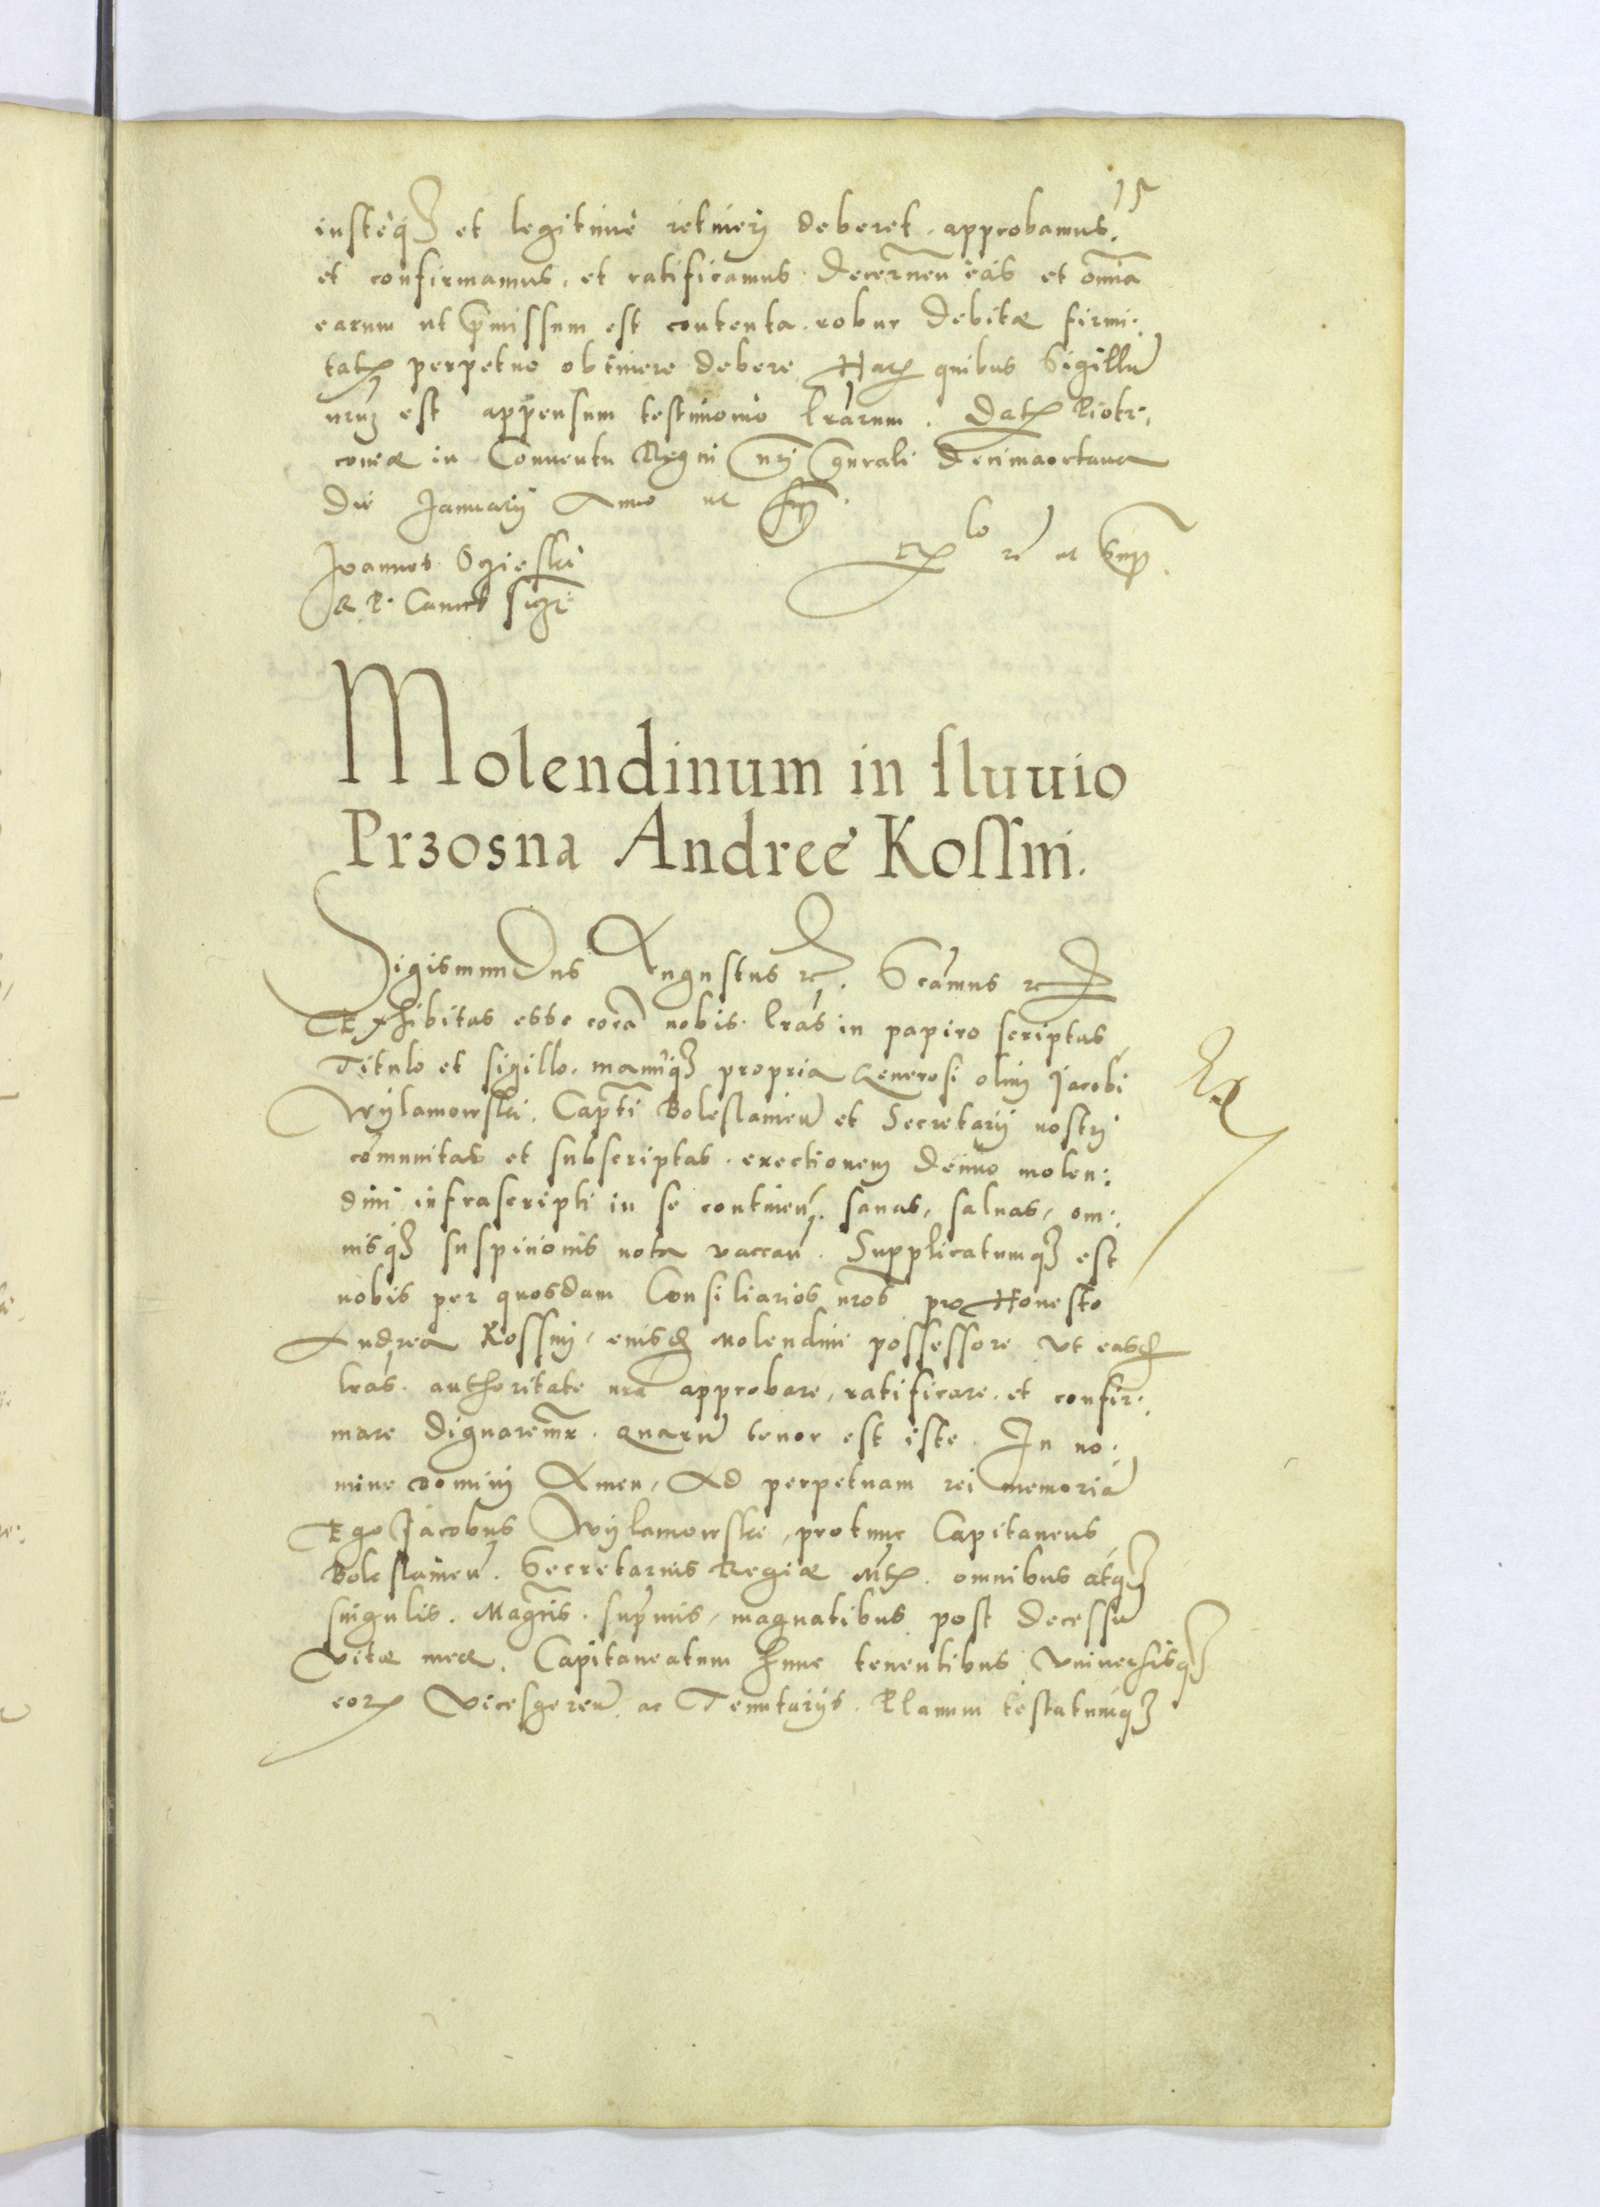 15
iusteq₃ et legitime retineri deberet. approbamus,
et confirmamus, et ratificamus. Decernen̄ eas et om̄ia
earum ut p̄missum est contenta. robur debitæ firmi:
tatꝭ perpetuo obtinere debere Harꝭ quibus Sigillū
nr̄m est appensum testimonio lr̄arum. Datꝭ Piotr:
coviæ in Conventu Regni nr̄i gn̄rali Decimaoctava
Die Januarij Anno ut sup̄.
Joannes Oczieski
R. P. Cancel̄ sugr̄
Rlo ut sup̄.
Molendinum in fluuio
Przosna Andreē Kossmi.
Sigismundus Augustus ꝛc̄. S̄camus ꝛc̄
Exhibitas esse corā nobis lr̄as in papiro scriptas
Titulo et sigillo. manuq₃ propria Generosi olim Jacobi
Wylamowski. Cap̄ti Boleslauien̄ et Secretarij nostri
com̄unitas et subscriptas. erectionem denuo molen:
dini infrascripti in se continen̄. sanas, saluas, om:
nisq₃ suspicionis nota vaccan̄. Supplicatumq₃ est
nobis per quosdam Consiliarios nr̄os pro Honesto
Andrea Kossmi, eiusđ Molendini possessore Vt easđ
lr̄as. authoritate nr̄a approbare, ratificare. et confir:
mare dignarem̄r. Quarū tenor est iste. In no:
mine Domini Amen, Ad perpetuam rei memoriā
Ego Jacobus Wylamowski, protunc Capitaneus
Boleslauien̄. Secretarius Regiæ Mt̄ꝭ. omnibus atq₃
singulis. Mag̃ris. sup̄mis, magnatibus post decessū
Vitæ meæ. Capitaneatum hunc tenentibus Vniuersisq₃
eorꝭ Vicesgeren̄. ac Tenutarijs. Planum testatumq₃